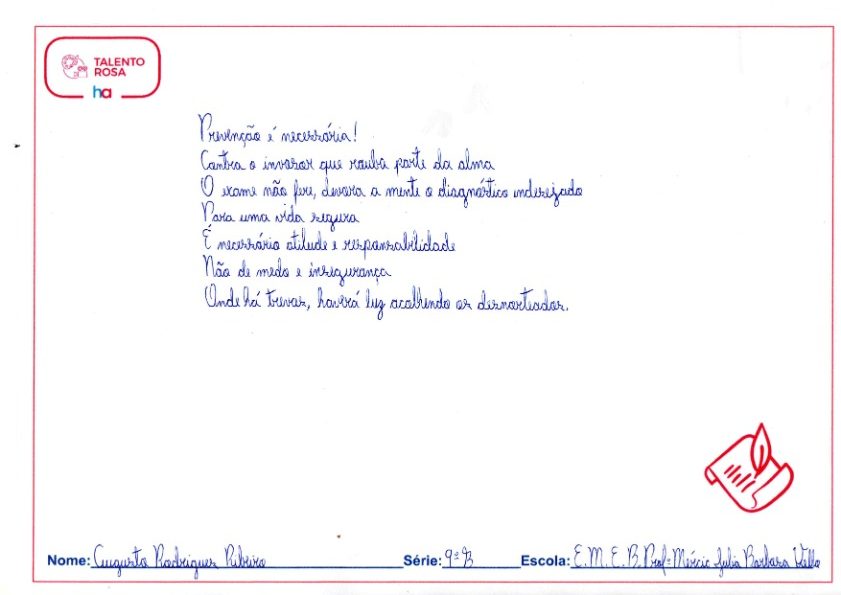 TALENTO
ROSA
ha
Prevenção é necessária!
Contra o invasor que rouba parte da alma
O exame não fere, devora a mente o diagnóstico indesejado
Para uma vida segura
É necessário atitude e responsabilidade
Não de medo e insegurança
Onde há trevas, haverá luz acolhendo os desnorteados.
Nome: Augusto Rodrigues Ribeiro Série: 9º B Escola: E.M.E.B. Profª Mércia Julia Barbara Vello